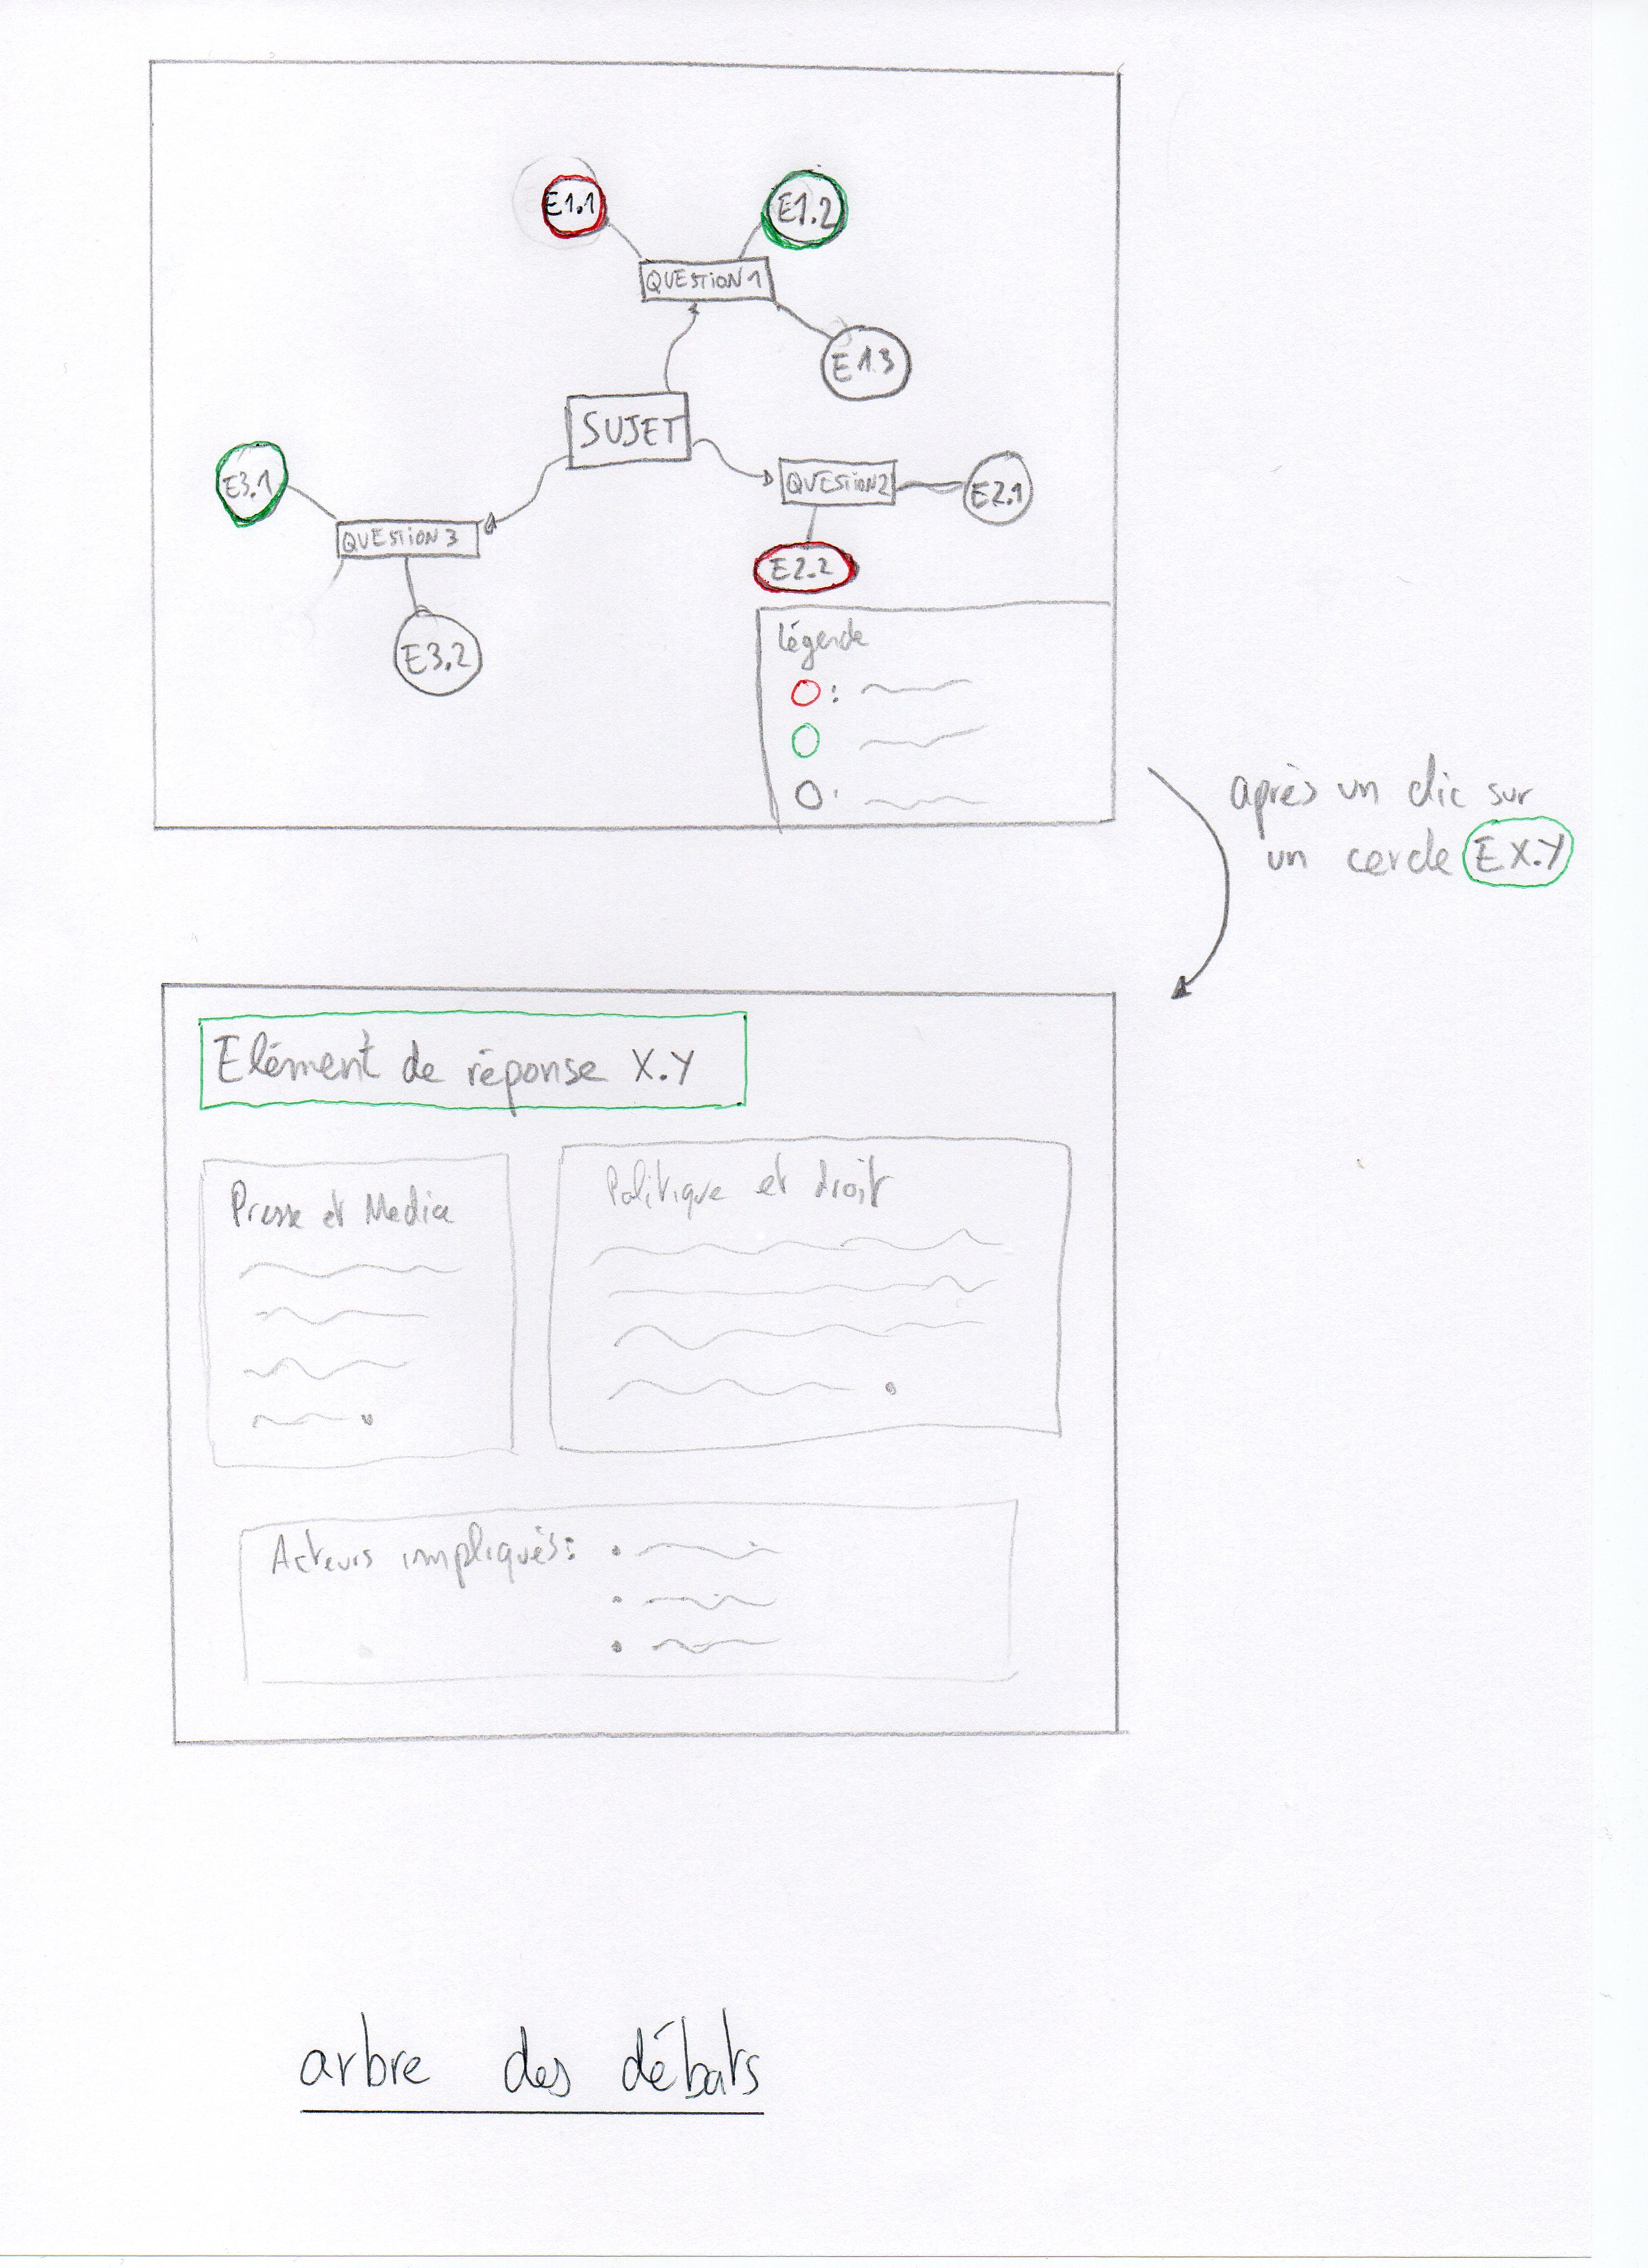 E1.1
E1.2
QUESTION 1
E1.3
SUJET
E3.1
QUESTION 2
E2.1
QUESTION 3
E2.2
E3.2
légende
:
:
après un clic sur
un cercle EX.Y
Elément de réponse X.Y
Presse et Media
Politique et droit
Acteurs impliqués:
arbre des débats